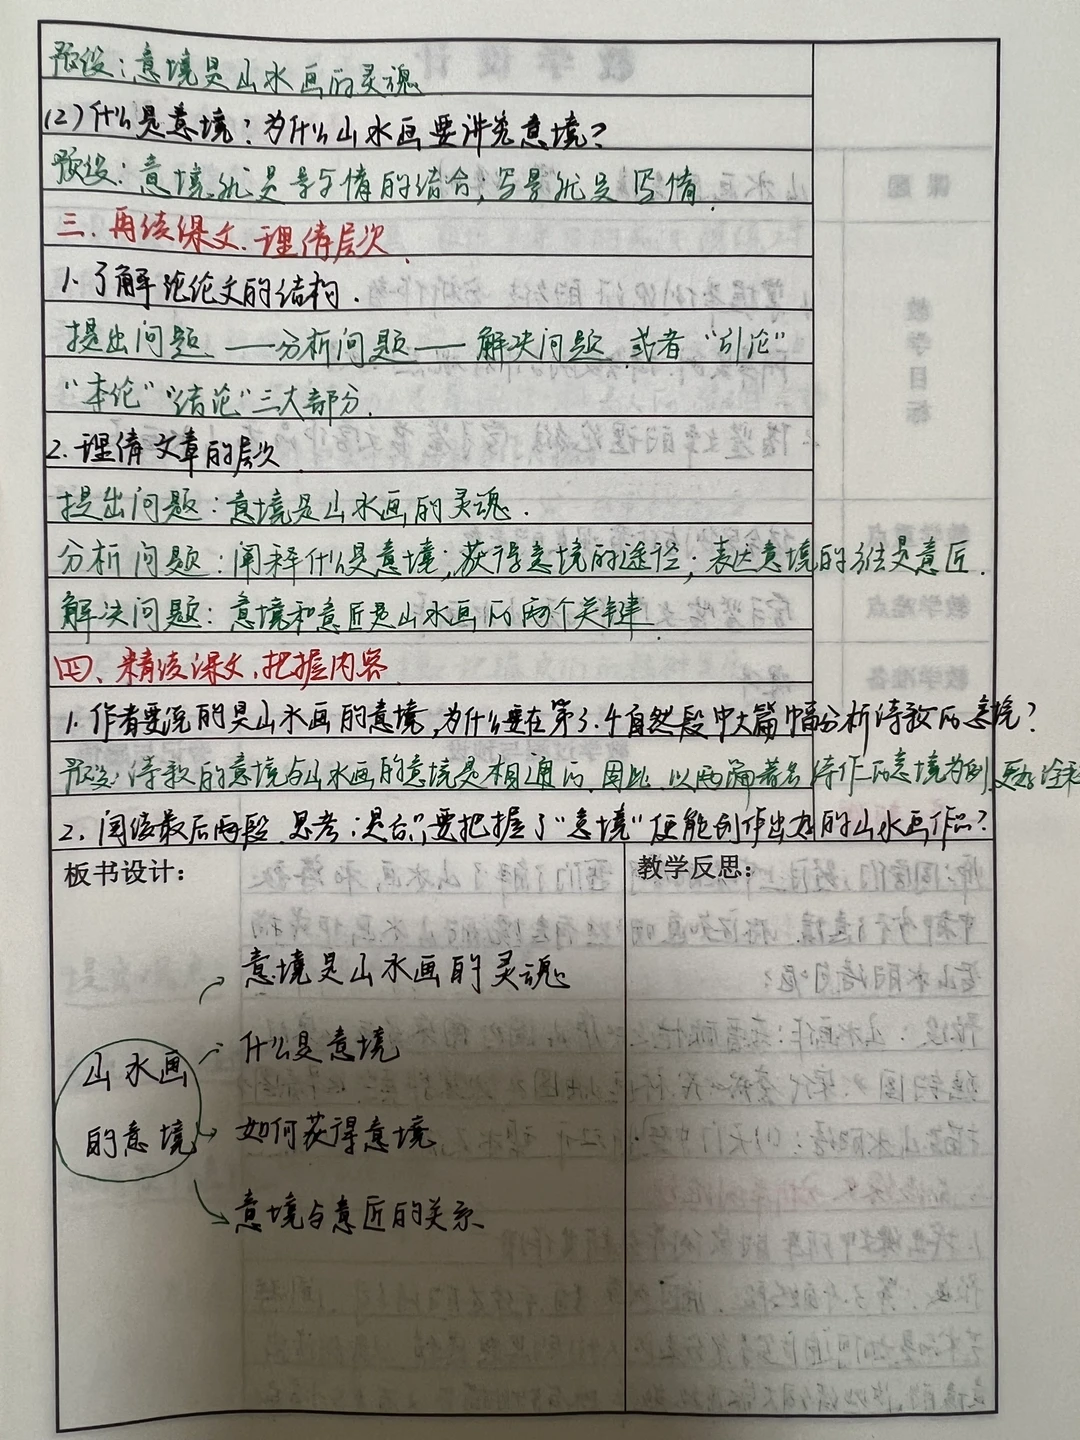 预设：意境是山水画的灵魂
(2)什么是意境？为什么山水画要讲究意境？
预设：意境就是景与情的结合,写景就是写情.
三.再读课文.理清层次.
1.了解议论文的结构.
提出问题——分析问题——解决问题 或者“引论”
“本论”“结论”三大部分.
2.理清文章的层次
提出问题：意境是山水画的灵魂.
分析问题：阐释什么是意境;获得意境的途径;表达意境的方法是意匠.
解决问题：意境和意匠是山水画的两个关键
四、精读课文,把握内容
1.作者要说的是山水画的意境,为什么要在第3.4自然段中大篇幅分析诗歌的意境？
预设：诗歌的意境与山水画的意境是相通的.因此.以两篇著名诗作的意境为例,
2.阅读最后两段.思考:是否只要把握了“意境”便能创作出好的山水画作品？
板书设计：
教学反思：
意境是山水画的灵魂
山水画
什么是意境
的意境
如何获得意境
意境与意匠的关系